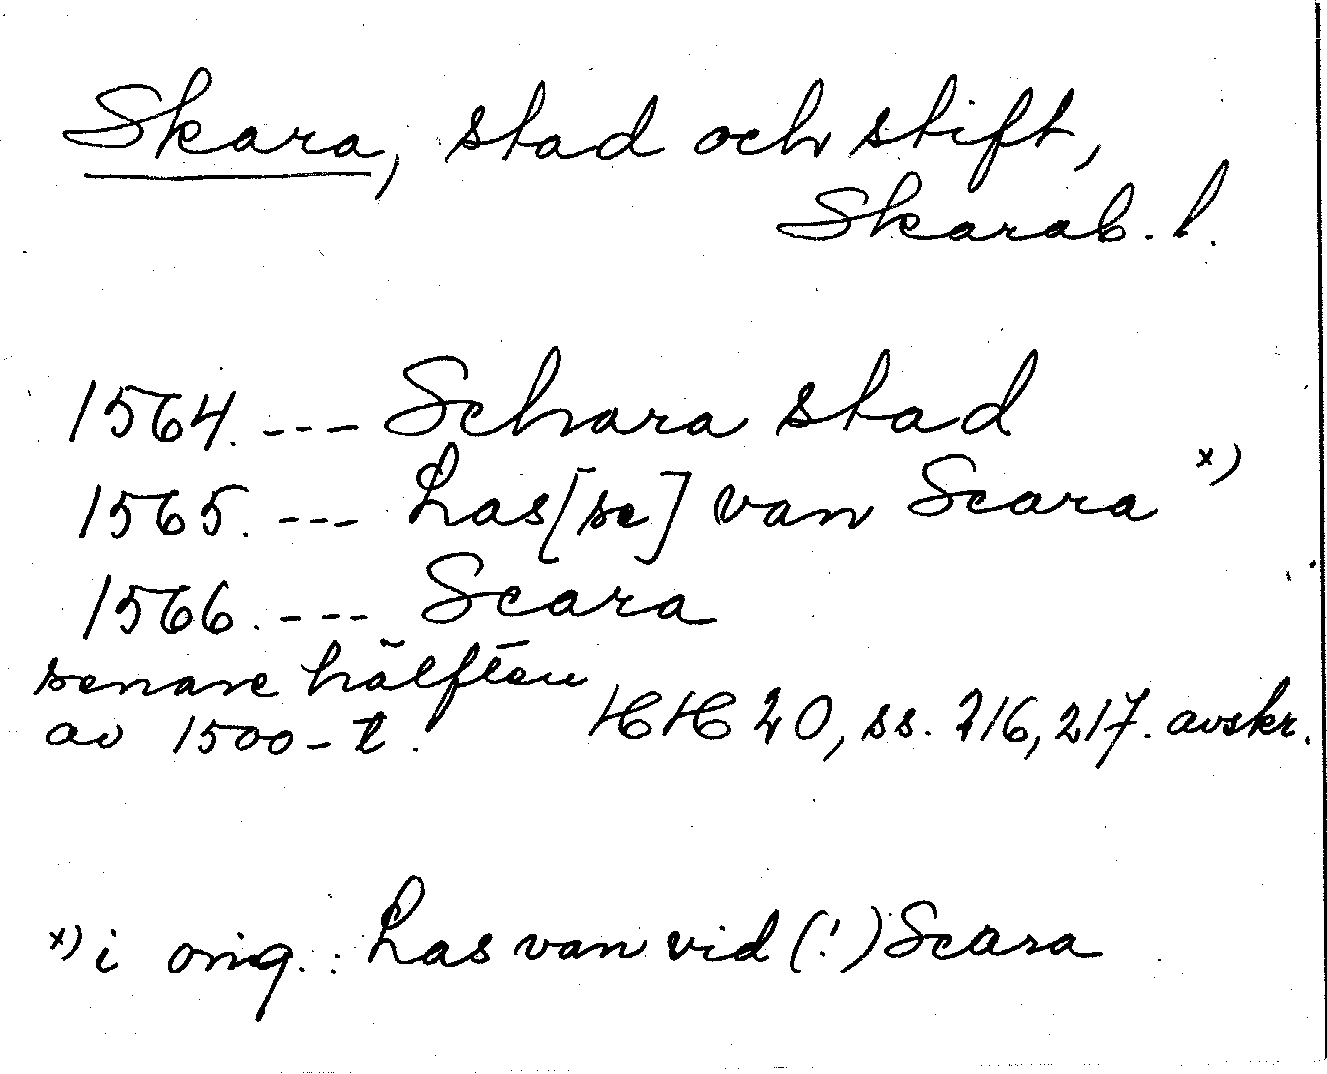 Skara, stad och stift,
Skarab. l.
1564. --- Schara stad
1565. --- Las[se] van Scara x)
1566. --- Scara
senare hälften
av 1500-t. HH 20, ss. 216, 217. avskr.
x) i orig.: Las van vid (!) Scara